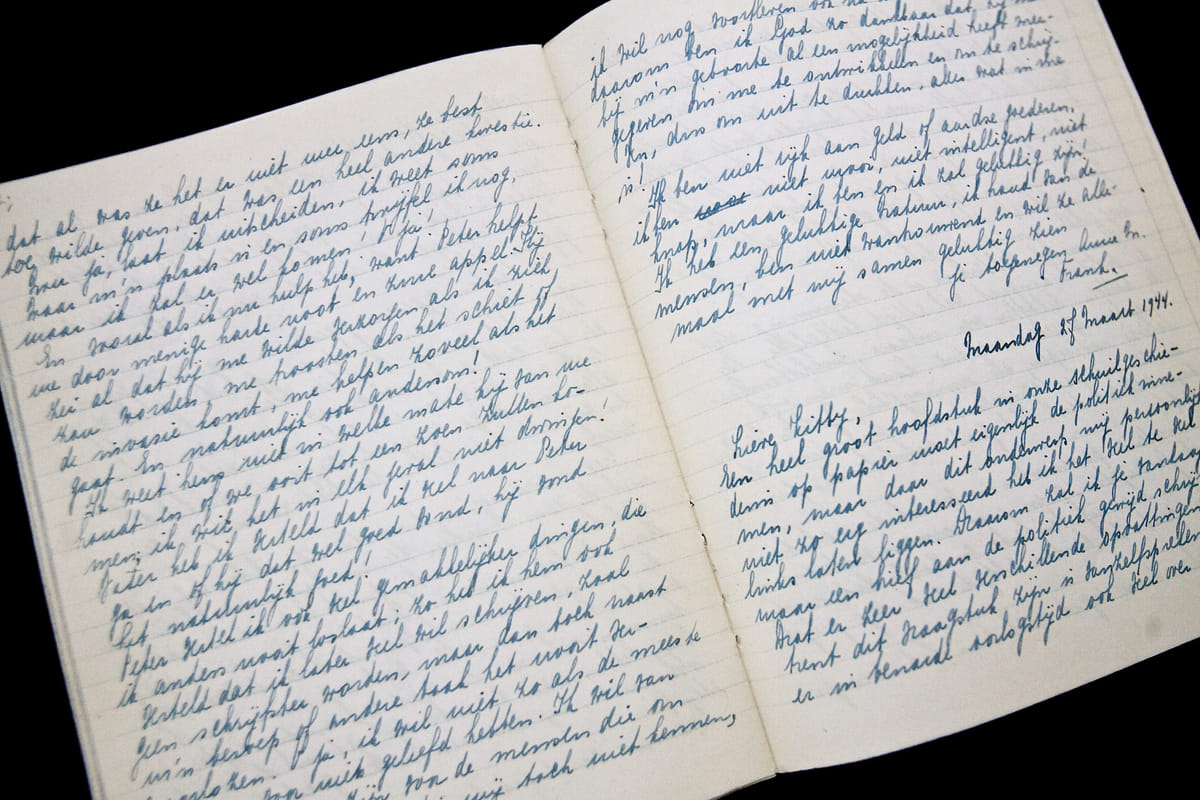 dat al was ze het er niet mee eens, ze best
toe wilde geven, dat was een heel andere kwestie.
Over ja, laat ik uitscheiden, ik weet soms
waar m'n plaats is en soms twijfel ik nog,
maar ik zal er wel komen! O ja!
En vooral als ik nu hulp heb, want Peter helpt
me door menige harde noot en zure appel. Hij
zei al dat hij me wilde verzorgen als ik ziek
zou worden, me troosten als het schiet of
de invasie komt, me helpen zoveel als het
gaat. En natuurlijk ook andersom!
Ik weet heus niet in welke mate hij van me
houdt en of we ooit tot een zoen zullen ko-
men; ik wil het in elk geval niet dwingen!
Vader heb ik verteld dat ik veel naar Peter
ga en of hij dat wel goed vond, hij vond
het natuurlijk goed!
Peter vertel ik ook veel gemakkelijker dingen, die
ik anders nooit loslaat; zo heb ik hem ook
verteld dat ik later veel wil schrijven, zoal
geen schrijfster worden, maar dan toch naast
m'n beroep of andere taak het nooit ver-
O ja, ik wil niet zo als de meeste
voor niets geleefd hebben. Ik wil van
voor de mensen die om
mij toch niet kennen,
ik wil nog voortleven ook na
daarom ben ik God zo dankbaar dat hij me
bij m'n geboorte al een mogelijkheid heeft mee-
gegeven om me te ontwikkelen en om te schrij-
ven, dus om uit te drukken, alles wat in me
is!
Ik ben niet rijk aan geld of aardse goederen,
ik ben niet mooi, niet intelligent, niet
knap, maar ik ben en ik zal gelukkig zijn!
Ik heb een gelukkige natuur, ik houd van de
mensen, ben niet wantrouwend en wil ze alle-
maal met mij samen gelukkig zien
je toegenegen Anne M.
Frank.
Maandag 27 Maart 1944.
Lieve Kitty,
Een heel groot hoofdstuk in onze schuilgeschie-
denis op papier moet eigenlijk de politiek inne-
men, maar daar dit onderwerp mij persoonlijk
niet zo erg interesseerd heb ik het veel te veel
links laten liggen. Daarom zal ik je vandaag
maar een brief aan de politiek gewijd schrij
Dat er zeer veel verschillende opvattingen
trent dit vraagstuk zijn is vanzelfspreken
er in benarde oorlogstijd ook veel over